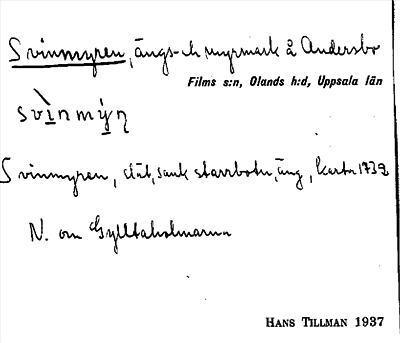 Svinmyren, ängs- ch myrmark å Andersbo
Films s:n, Olands h:d, Uppsala län
svìnmýŋ
Svinmyren, slät, sank starrbotn, äng, Karta 1739
N. om Gylltaholmarna
HANS TILLMAN 1937